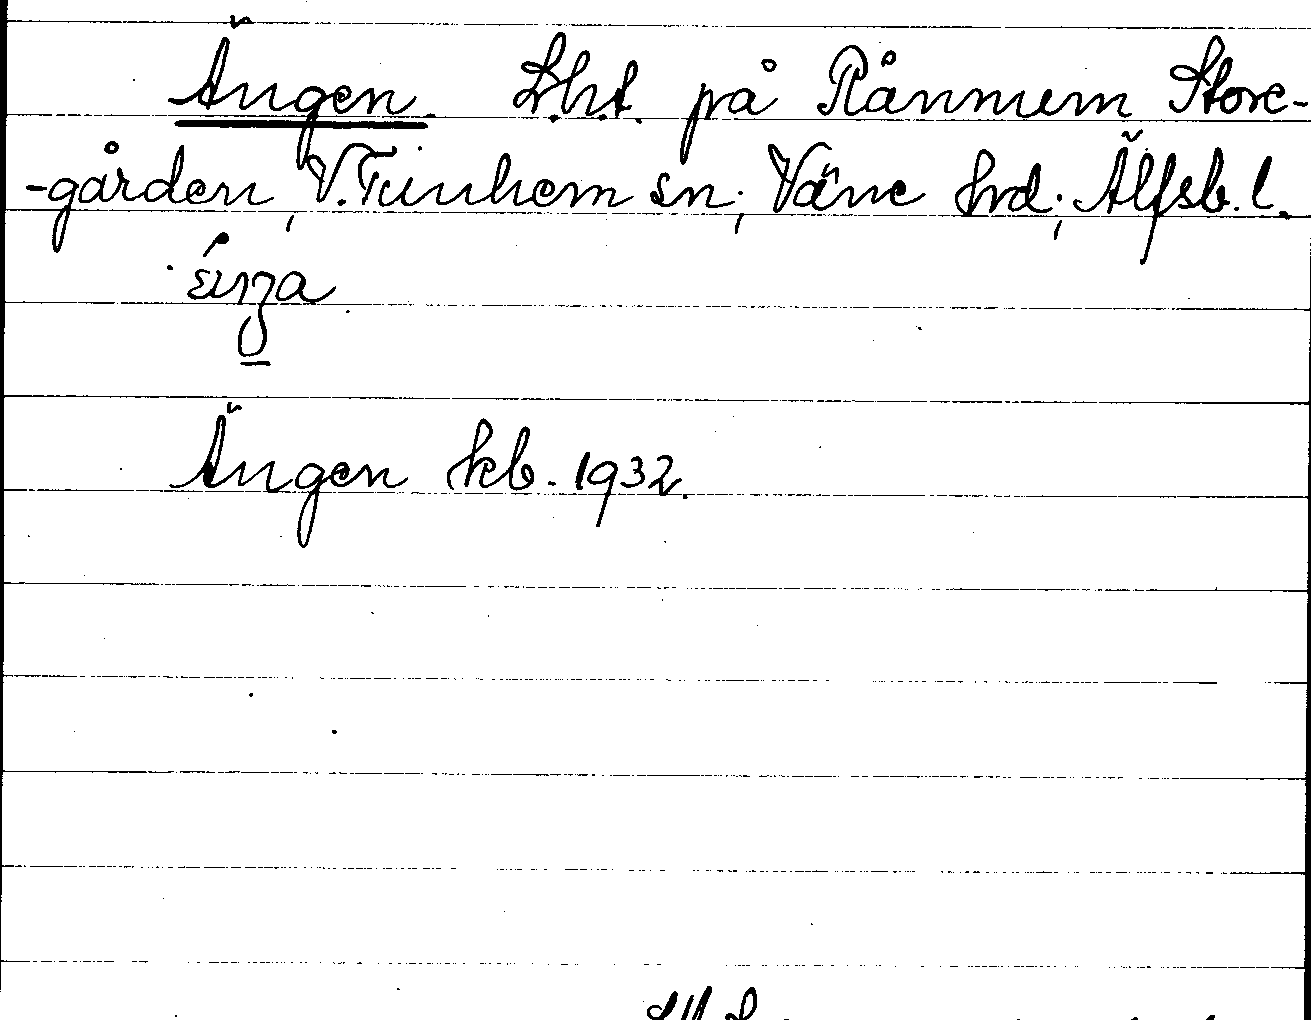 Ängen. L.h.t. på Rånnum Store-
-gården, V. Tunhem sn; Väne hrd; Älfsb. l.
Ängen kb. 1932.